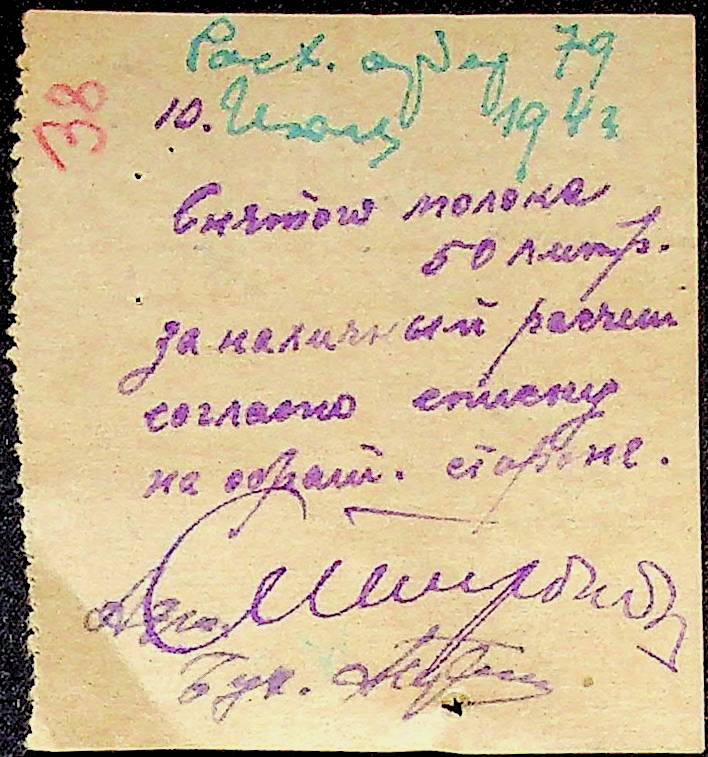 Расх. ордер 79
38
10. Июля 194
Снятого молока
50 литр.
за наличный расчет
согласно списку
на обрат. стороне.
Бух.